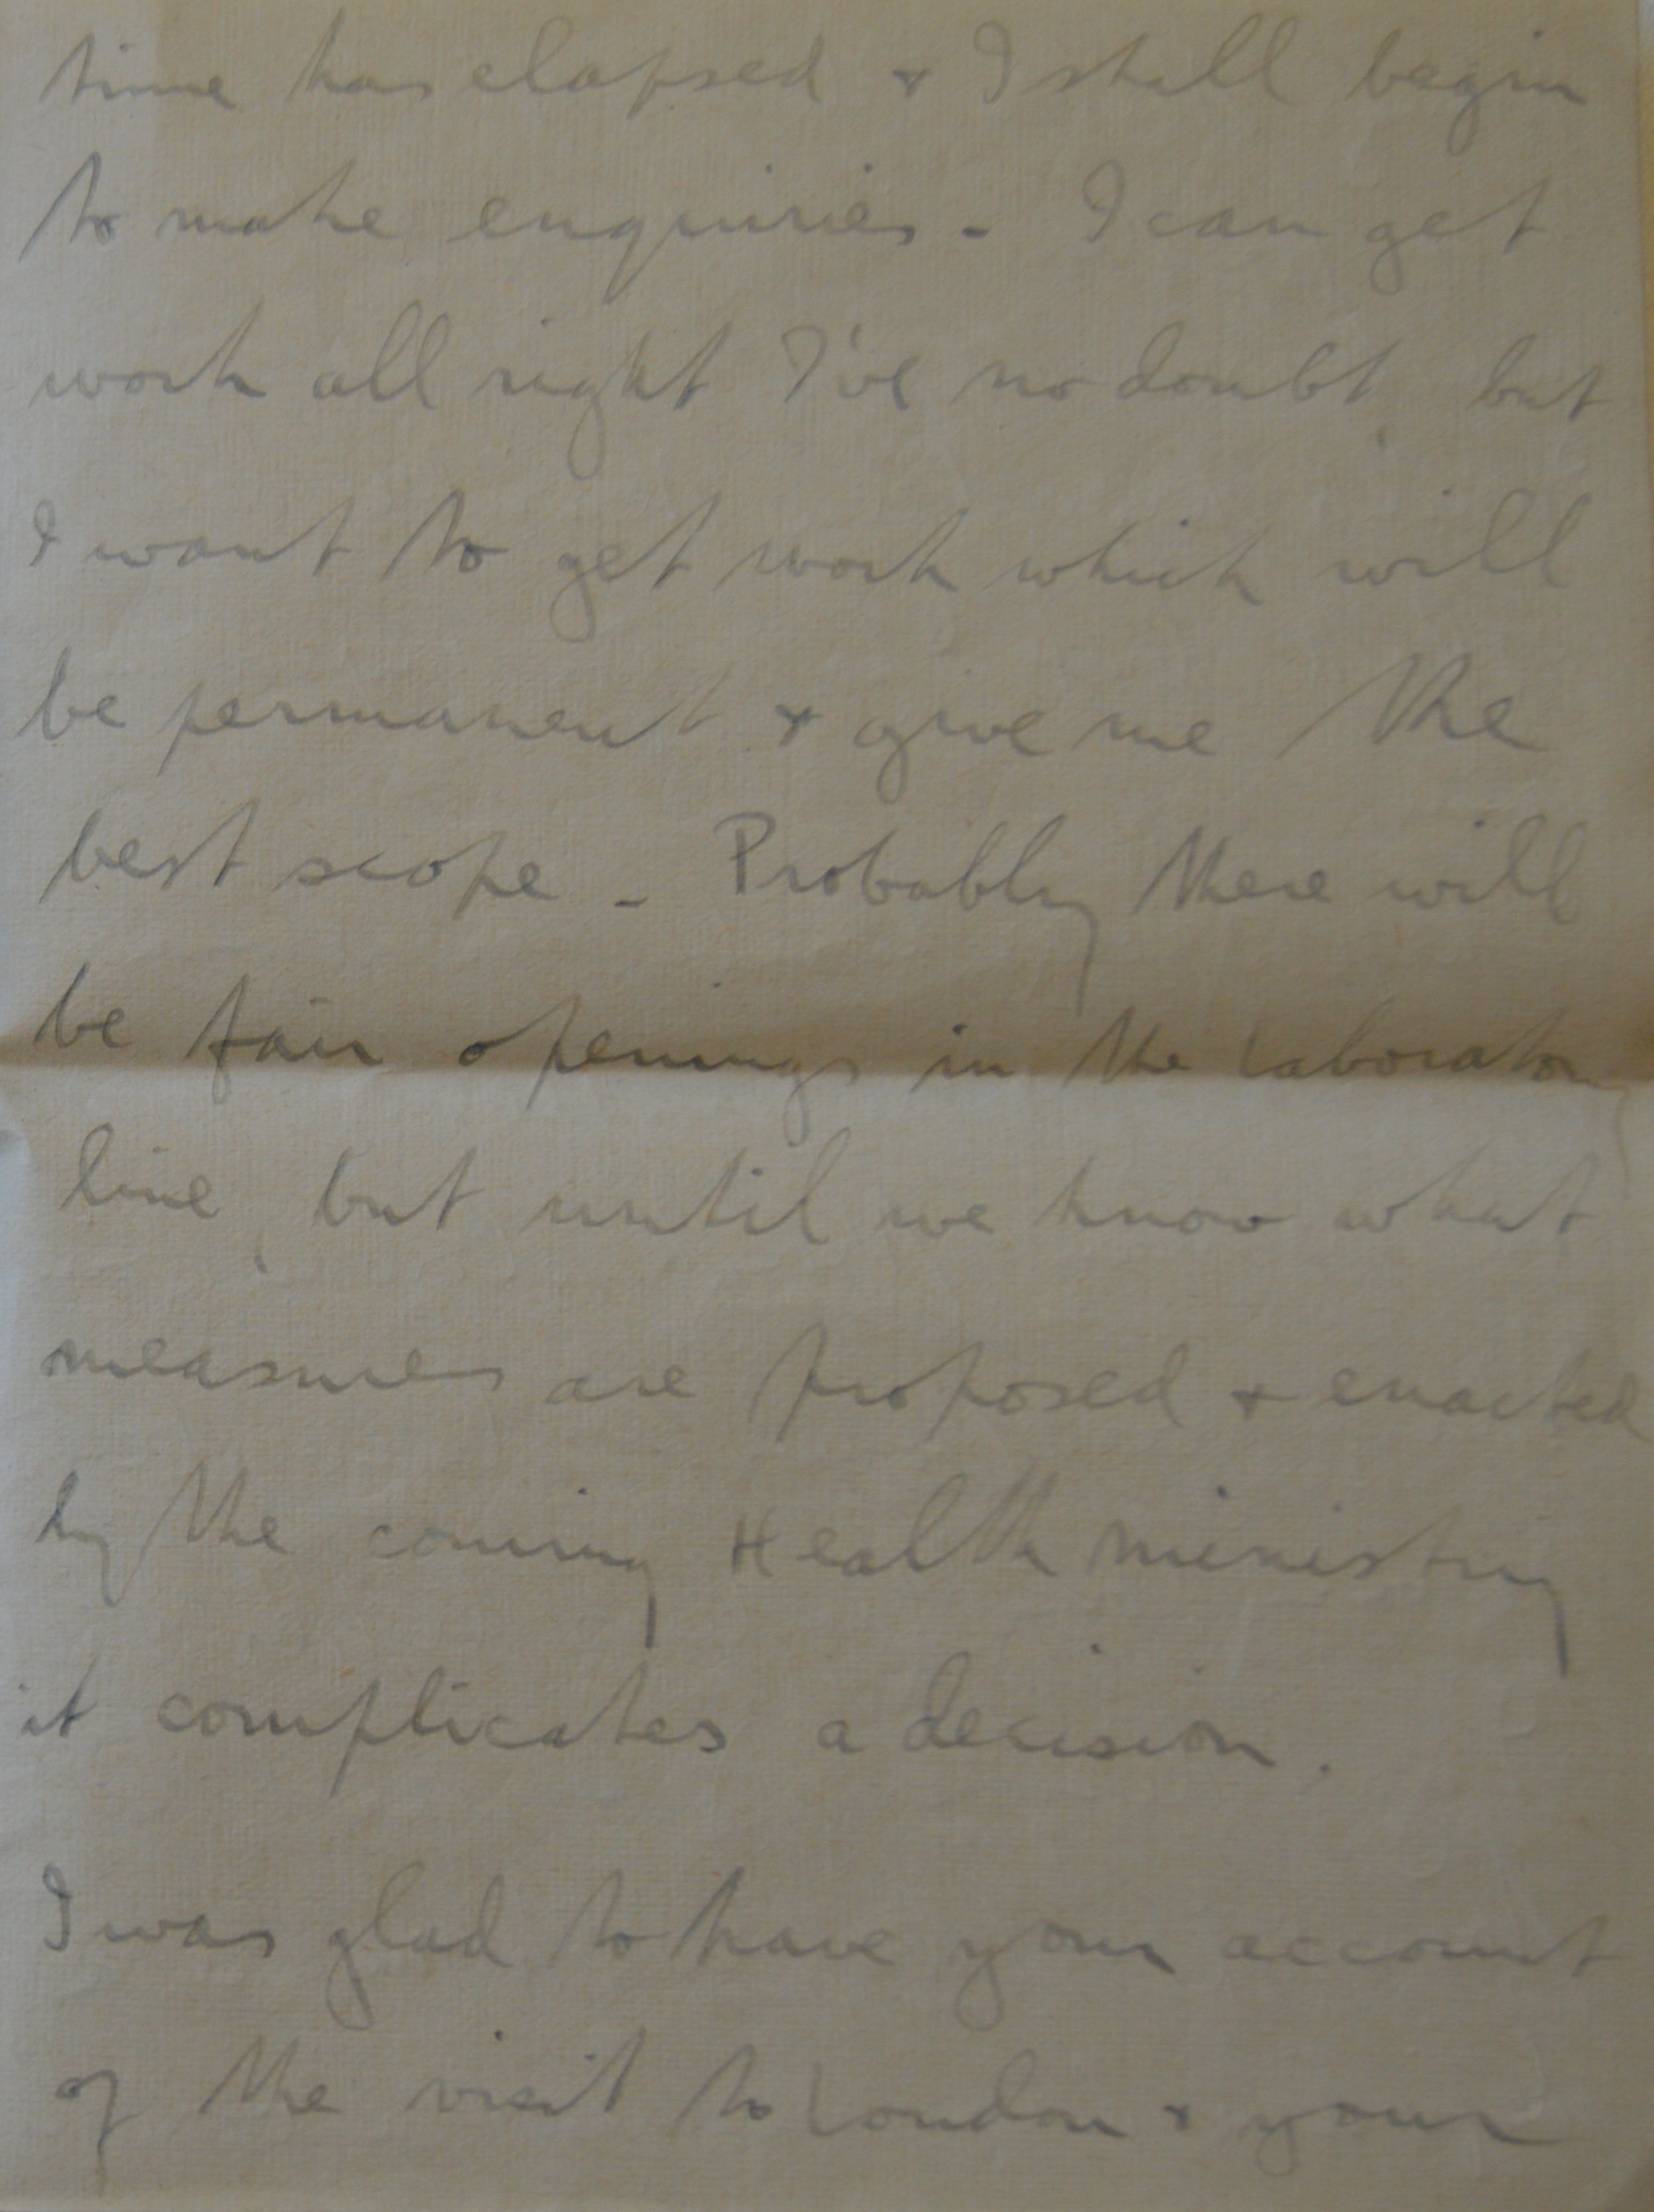 time has elapsed & I shall begin
to make enquiries - I can get
work all right I've no doubt, but
I want to get work which will
be permanent & give me the
best scope - Probably there will
be fair openings in the laboratory
line, but until we know what
measures are proposed & enacted
by the coming Health ministry
it complicates a decision.
I was glad to have your account
of the visit to London & your